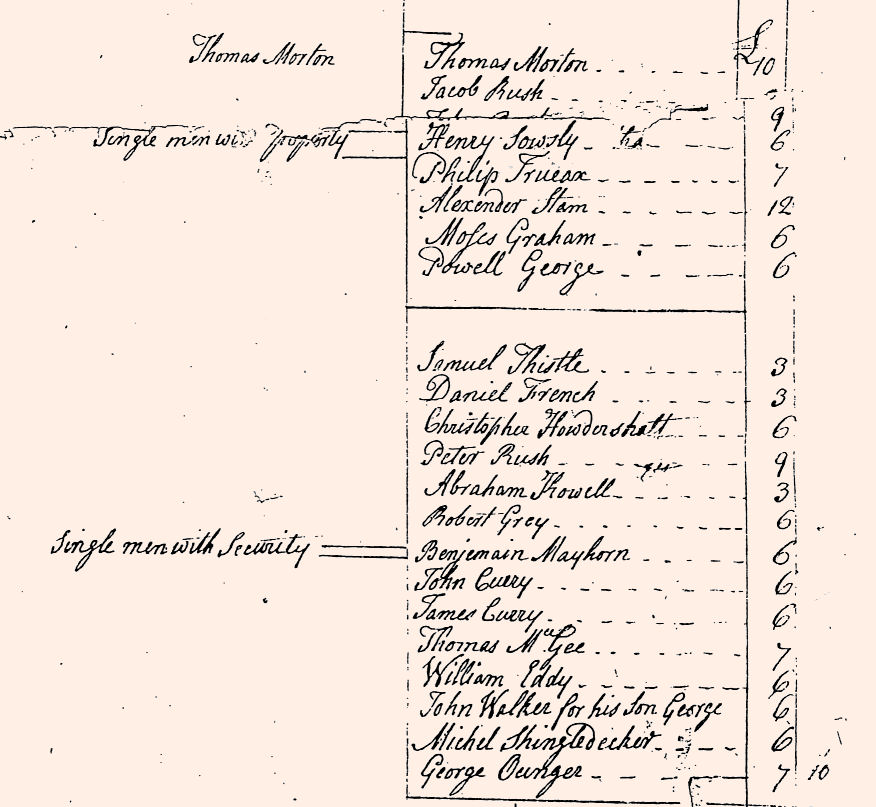 £
Thomas Morton
Thomas Morton 10
Jacob Rush
9
Single men with Property
Henry Sowsly 6
Philip Trueax 7
Alexender Stam 12
Moses Graham 6
Powell George 6
Samuel Thistle 3
Daniel French 3
Christopher Howdershalt 6
Peter Rush 9
Abraham Howell 3
Robert Grey 6
Single men with Security
Benjemain Mayhorn 6
John Curry 6
James Curry 6
Thomas McGee 7
William Eddy 6
John Walker for his Son George 6
Michel Shingledecker 6
George Ounger 7 10